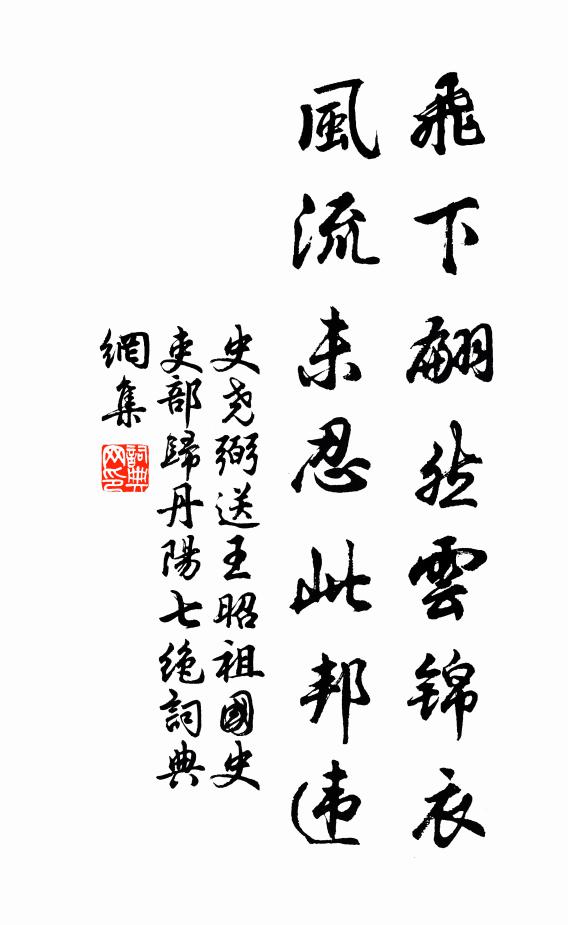 飛下翩然雲錦衣
風流未忍此邦違
史堯弼送王昭祖國史
吏部歸丹陽七絶詞典
網集
詞典
网印